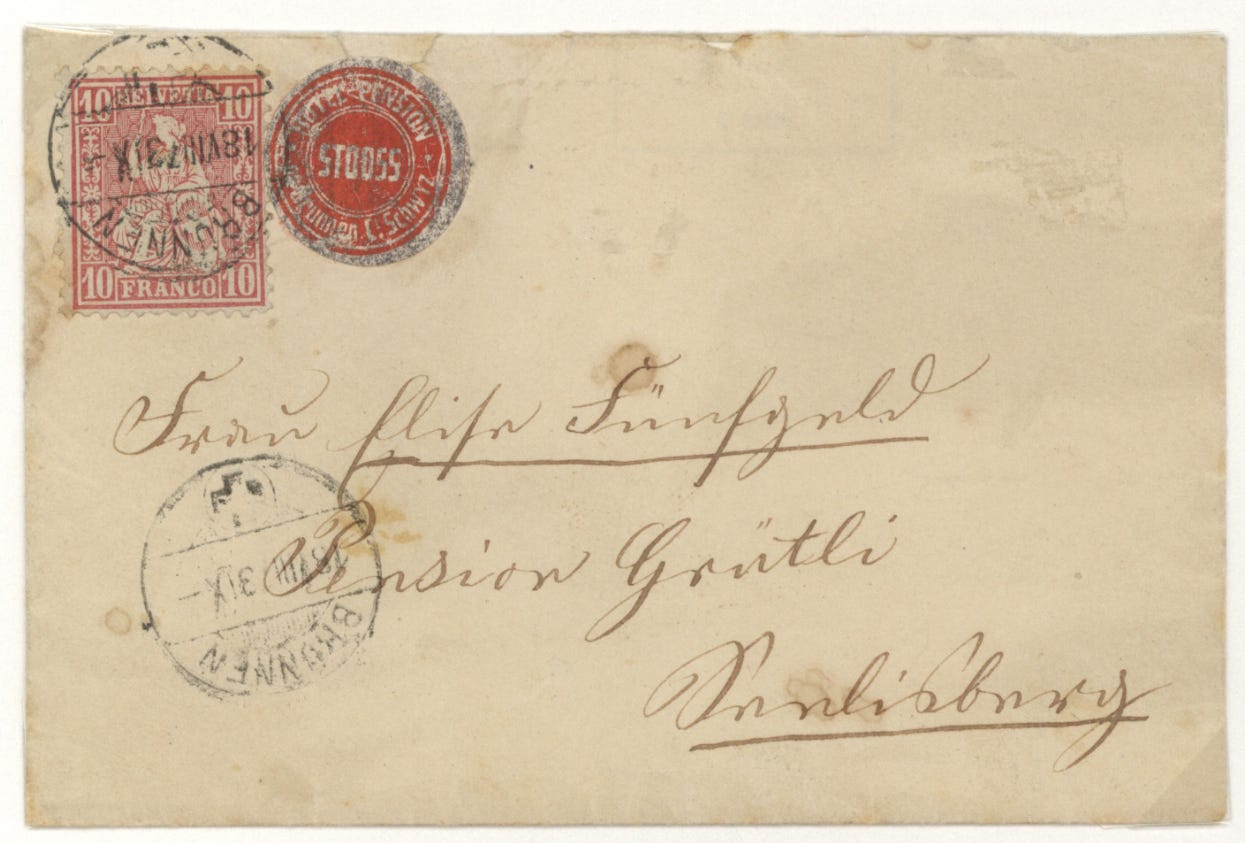 10 HELVETIA 10
10 FRANCO 10
BRUNNEN
18 VIII 73 IX
HOTEL PENSION
STOOSS
Brunnen Ct. SCHWYZ
Frau Elise Fünfgeld
Pension Grütli
Seelisberg
18 VIII 73 IX
BRUNNEN